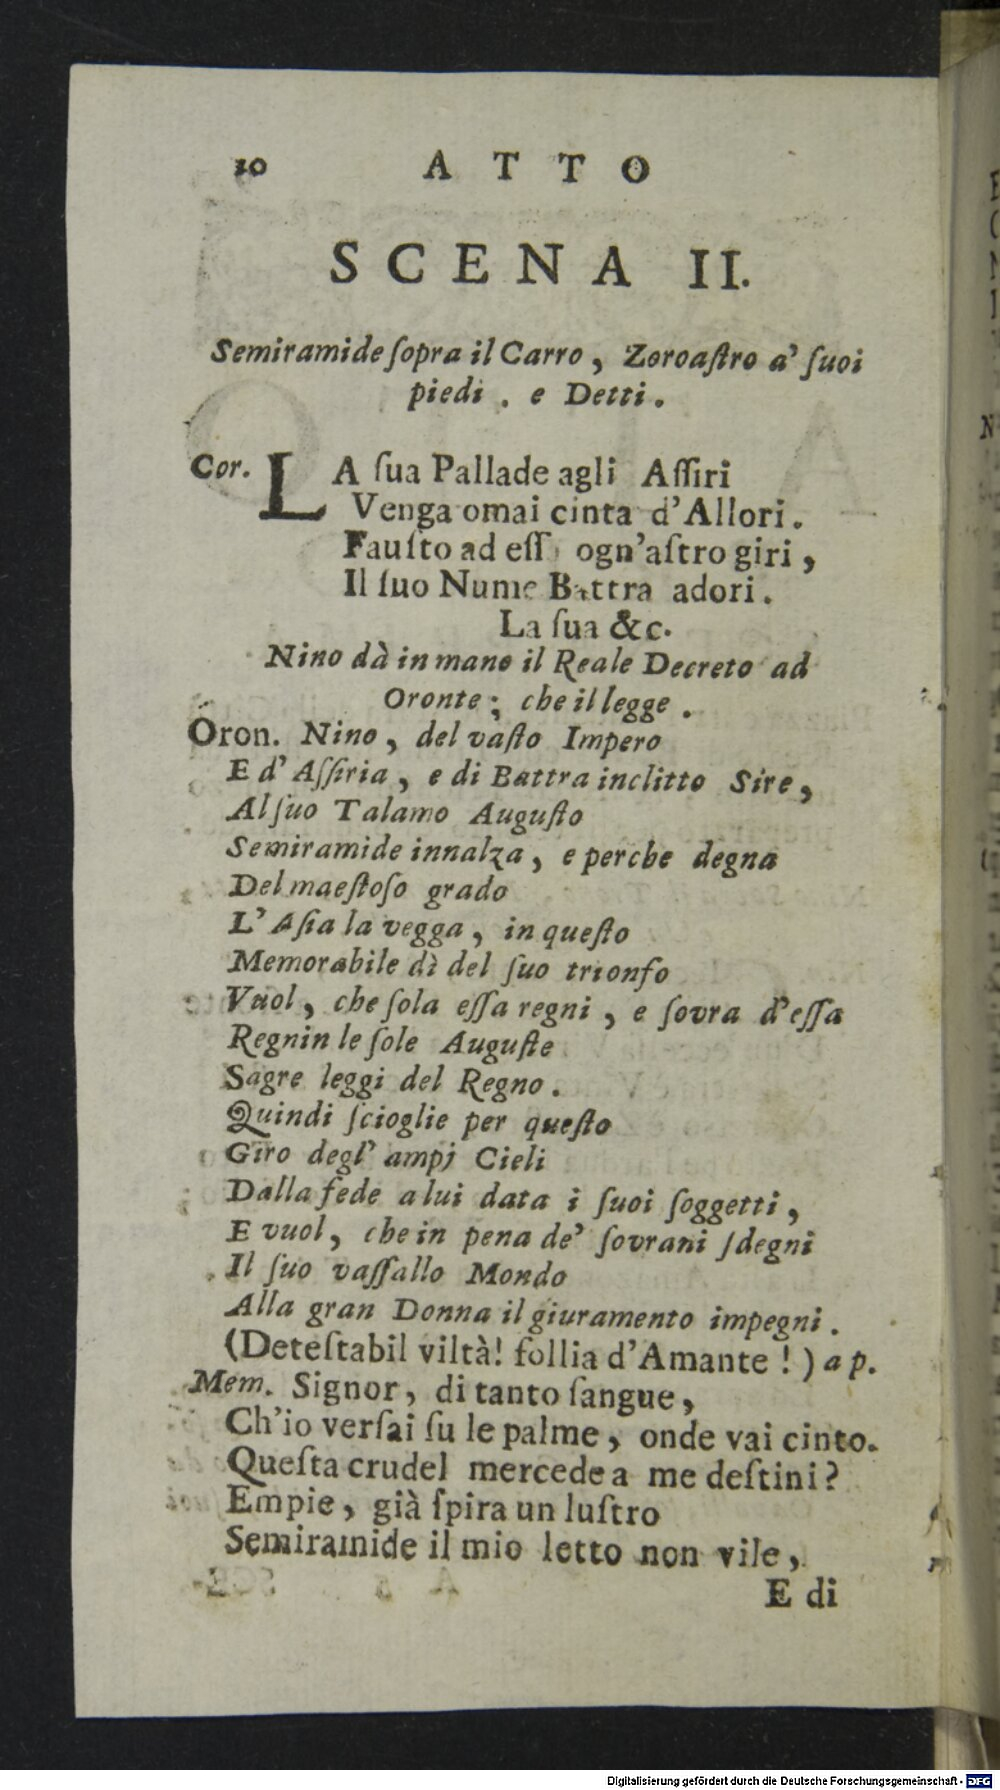 10 ATTO
SCENA II.
Semiramide ſopra il Carro, Zoroaſtro a' ſuoi
piedi. e Detti.
Cor. LA ſua Pallade agli Aſſiri
Venga omai cinta d'Allori.
Fauſto ad eſſ ogn'aſtro giri,
Il ſuo Nume Battra adori.
La ſua &c.
Nino dà in mano il Reale Decreto ad
Oronte; che il legge.
Oron. Nino, del vaſto Impero
E d' Aſſiria, e di Battra inclitto Sire,
Al ſuo Talamo Auguſto
Semiramide innalza, e perche degna
Del maeſtoſo grado
L' Aſia la vegga, in queſto
Memorabile dì del ſuo trionfo
Vuol, che ſola eſſa regni, e ſovra d'eſſa
Regnin le ſole Auguſte
Sagre leggi del Regno.
Quindi ſcioglie per queſto
Giro degl' ampj Cieli
Dalla fede a lui data i ſuoi ſoggetti,
E vuol, che in pena de' ſovrani ſdegni
Il ſuo vaſſallo Mondo
Alla gran Donna il giuramento impegni.
(Deteſtabil viltà! follia d'Amante!) a p.
Mem. Signor, di tanto ſangue,
Ch'io verſai ſu le palme, onde vai cinto.
Queſta crudel mercede a me deſtini?
Empie, già ſpira un luſtro
Semiramide il mio letto non vile,
E di
Digitalisierung gefördert durch die Deutsche Forschungsgemeinschaft - DFG